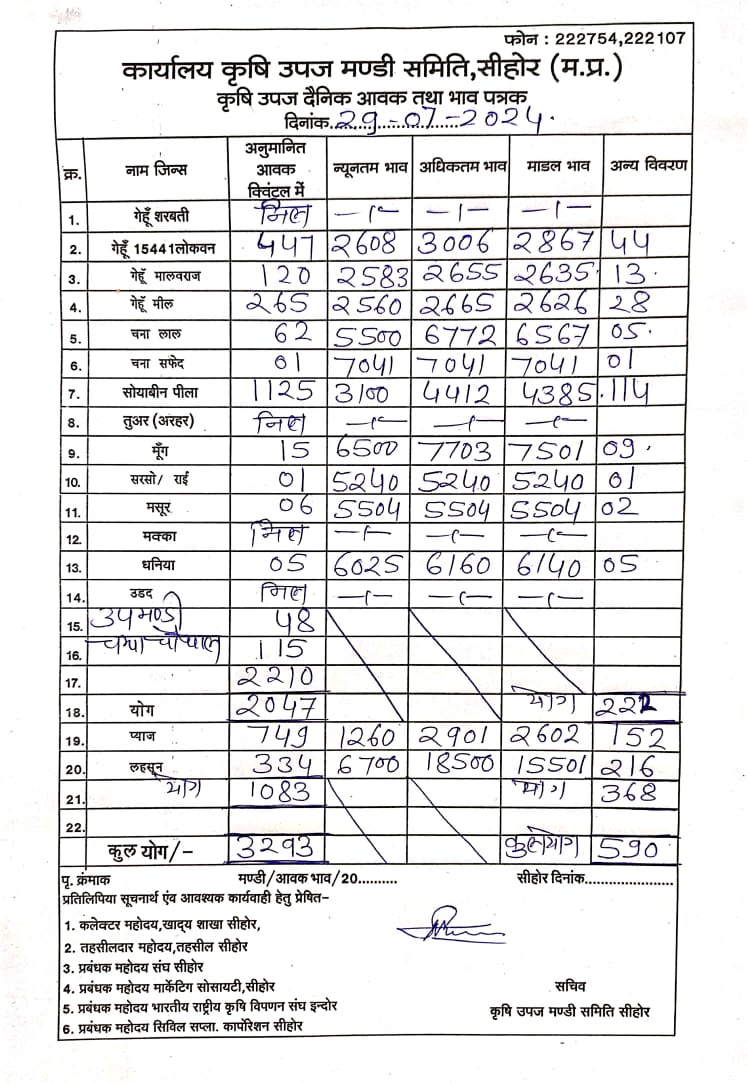 फोन : 222754,222107
कार्यालय कृषि उपज मण्डी समिति,सीहोर (म.प्र.)
कृषि उपज दैनिक आवक तथा भाव पत्रक
दिनांक.29-07-2024.
क्र. नाम जिन्स अनुमानित आवक क्विंटल में न्यूनतम भाव अधिकतम भाव माडल भाव अन्य विवरण
1. गेहूँ शरबती निल —/— —/— —/—
2. गेहूँ 15441लोकवन 447 2608 3006 2867 44
3. गेहूँ मालवराज 120 2583 2655 2635 13
4. गेहूँ मील 265 2560 2665 2626 28
5. चना लाल 62 5500 6772 6567 05
6. चना सफेद 01 7041 7041 7041 01
7. सोयाबीन पीला 1125 3100 4412 4385 114
8. तुअर (अरहर) निल —/— —/— —/—
9. मूँग 15 6500 7703 7501 09
10. सरसो/ राई 01 5240 5240 5240 01
11. मसूर 06 5504 5504 5504 02
12. मक्का निल —/— —/— —/—
13. धनिया 05 6025 6160 6140 05
14. उडद निल —/— —/— —/—
15. उपमण्डी 48
16. चौपाल 115
17. 2210
18. योग 2047 योग 222
19. प्याज 749 1260 2901 2602 152
20. लहसून 334 6700 18500 15501 216
21. योग 1083 योग 368
22.
कुल योग/- 3293 कुलयोग 590
पृ. क्रंमाक मण्डी/आवक भाव/20.......... सीहोर दिनांक.......................
प्रतिलिपिया सूचनार्थ एंव आवश्यक कार्यवाही हेतु प्रेषित–
1. कलेक्टर महोदय,खाद्य शाखा सीहोर,
2. तहसीलदार महोदय,तहसील सीहोर
3. प्रबंधक महोदय संघ सीहोर
4. प्रबंधक महोदय मार्केटिंग सोसायटी,सीहोर सचिव
5. प्रबंधक महोदय भारतीय राष्ट्रीय कृषि विपणन संघ इन्दोर कृषि उपज मण्डी समिति सीहोर
6. प्रबंधक महोदय सिविल सप्ला. कार्पोरेशन सीहोर